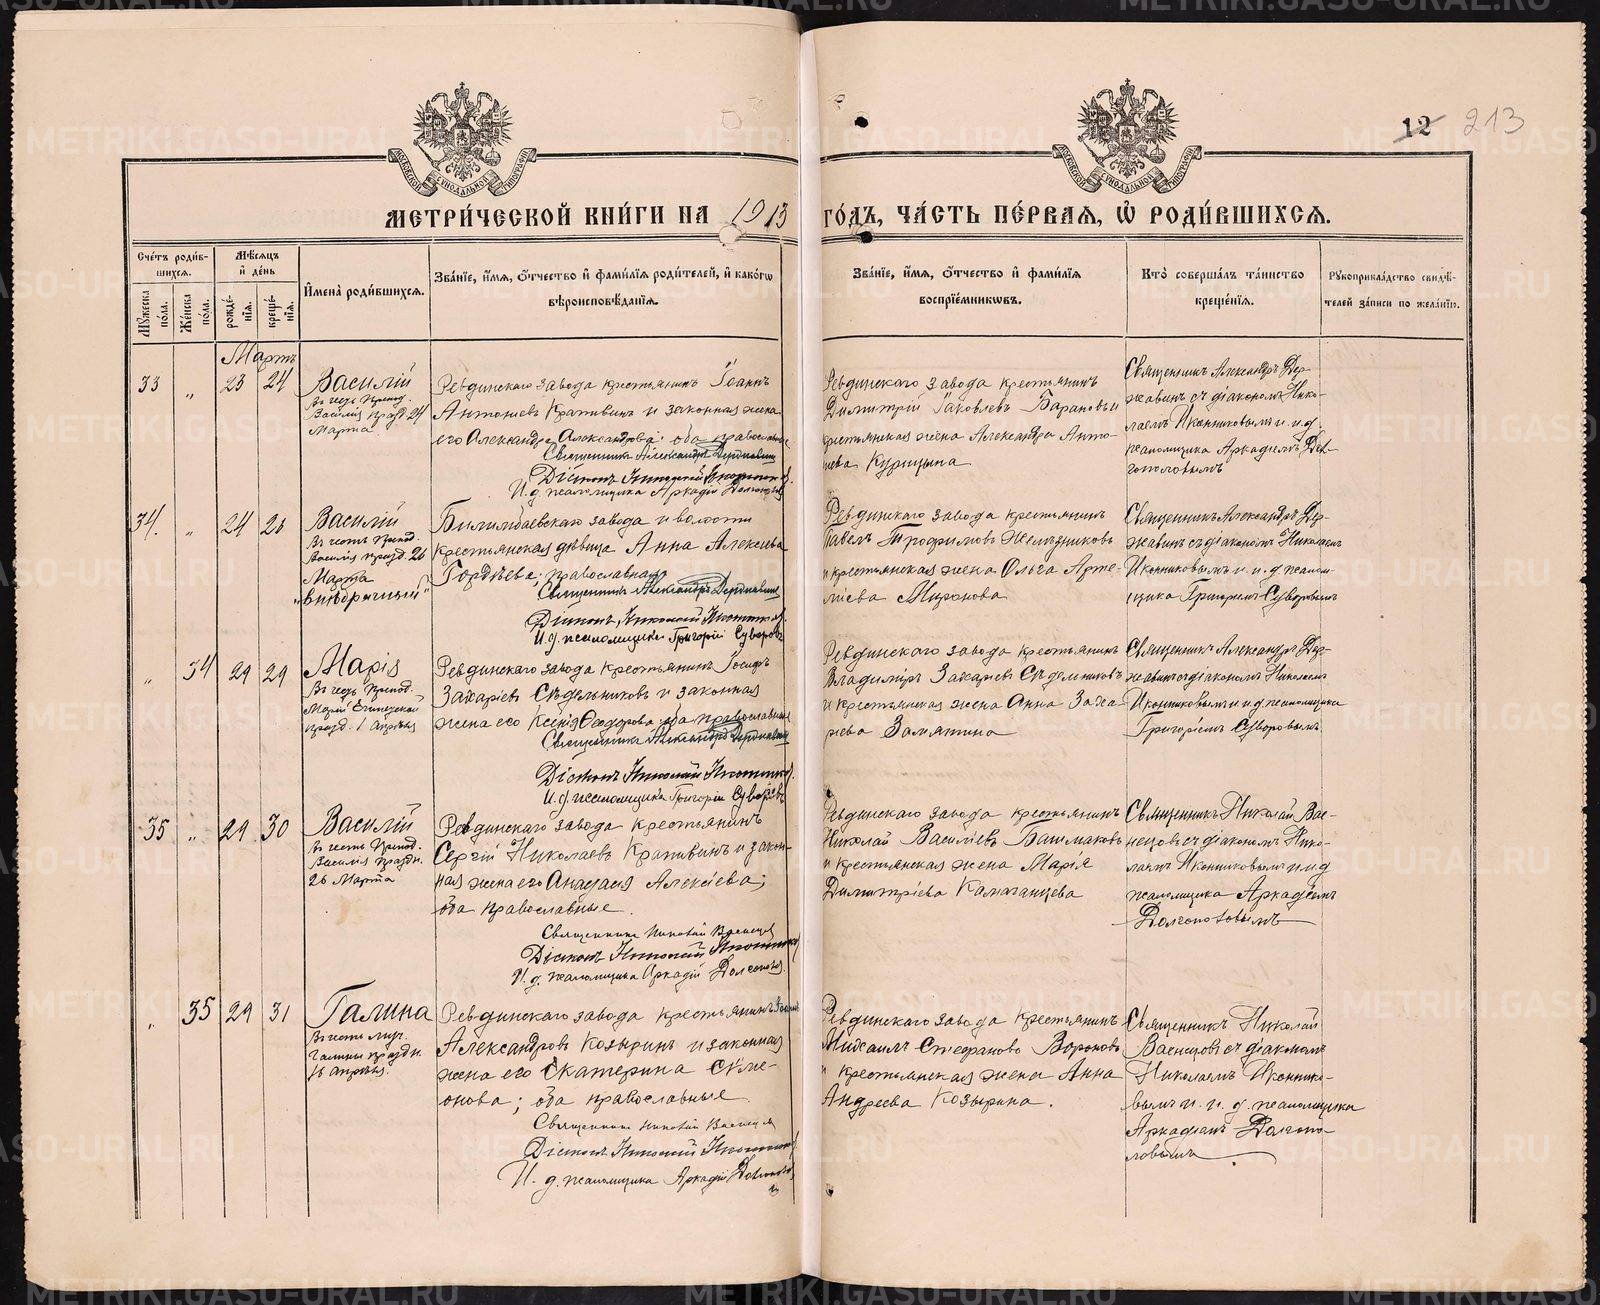 12 213
МОСКОВСКОЙ СѴНОДАЛЬНОЙ ТИПОГРАФІИ
МОСКОВСКОЙ СѴНОДАЛЬНОЙ ТИПОГРАФІИ
МЕТРИ́ЧЕСКОЙ КНИ́ГИ НА 1913 ГО́ДЪ, ЧА́СТЬ ПЕ́РВАЯ, Ѡ҆ РОДИ́ВШИХСЯ.
Сче́тъ роди́в-
шихся.
Му́жеска по́ла.
Же́нска по́ла.
Мѣ́сяцъ
и҆ де́нь
рожде́-
нїя.
креще́-
нїя.
И҆мена̀ роди́вшихся.
Зва́нїе, и҆́мя, ѻ҆́тчество и҆ фами́лїя роди́телей, и҆ како́гѡ
вѣроисповѣ́данїя.
Зва́нїе, и҆́мя, ѻ҆́тчество и҆ фами́лїя
воспрїе́мникѡвъ.
Кто̀ соверша́лъ та́инство
креще́нїя.
Рꙋкоприкла́дство свидѣ́-
телей за́писи по жела́нїю.
Мартъ
33 " 23 24
Василій
въ честь препод.
Василія празд. 24
Марта
Ревдинскаго завода крестьянинъ Іоаннъ
Антоніевъ Крапивинъ и законная жена
его Александра Александрова; оба православные
Священникъ Александръ Державинъ
Діаконъ Николай Иконниковъ
И. д. псаломщика Аркадій Долгополовъ
Ревдинскаго завода крестьянинъ
Димитрій Іаковлевъ Барановъ и
крестьянская жена Александра Анто-
ніева Курицына
Священникъ Александръ Дер-
жавинъ съ діакономъ Нико-
лаемъ Иконниковымъ и и.д.
псаломщика Аркадіемъ Дол-
гополовымъ
34. " 24 25
Василій
въ честь препод.
Василія празд. 26
Марта
"внѣбрачный"
Билимбаевскаго завода и волости
крестьянская дѣвица Анна Алексіева
Гордѣева; православная
Священникъ Александръ Державинъ
Діаконъ Николай Иконниковъ
И. д. псаломщика Григорій Суворовъ
Ревдинскаго завода крестьянинъ
Павелъ Трофимовъ Жемчужниковъ
и крестьянская жена Ольга Арте-
міева Миронова
Священникъ Александръ Дер-
жавинъ съ діакономъ Николаемъ
Иконниковымъ и и. д псалом-
щика Григоріемъ Суворовымъ
" 34 29 29
Марія
въ честь препод.
Маріи Египетской
празд. 1 апрѣля
Ревдинскаго завода крестьянинъ Іосифъ
Захаріевъ Сѣдельниковъ и законная
жена его Ксенія Ѳеодорова оба православные
Священникъ Александръ Державинъ
Діаконъ Николай Иконниковъ
И. д. псаломщика Григорій Суворовъ
Ревдинскаго завода крестьянинъ
Владиміръ Захаріевъ Сѣдельниковъ
и крестьянская жена Анна Заха-
ріева Замятина
Священникъ Александръ Дер-
жавинъ съ діакономъ Николаемъ
Иконниковымъ и и д псаломщика
Григоріемъ Суворовымъ.
35 " 29 30
Василій
въ честь препод.
Василія праздн.
26 Марта
Ревдинскаго завода крестьянинъ
Сергій Николаевъ Крапивинъ и закон-
ная жена его Анастасія Алексіева;
оба православные.
Священникъ Николай Васнецовъ
Діаконъ Николай Иконниковъ
И. д. псаломщика Аркадій Долгополовъ
Ревдинскаго завода крестьянинъ
Николай Василіевъ Башмаковъ
и крестьянская жена Марія
Димитріева Калаганцева
Священникъ Николай Вас-
нецовъ съ діакономъ Нико-
лаемъ Иконниковымъ и и д
псаломщика Аркадіемъ
Долгополовымъ
" 35 29 31
Галина
въ честь муч.
Галины праздн.
16 апрѣля.
Ревдинскаго завода крестьянинъ
Александровъ Козыринъ и законная
жена его Екатерина Симе-
онова; оба православные.
Священникъ Николай Васнецовъ
Діаконъ Николай Иконниковъ
И. д. псаломщика Аркадій Долгополовъ
Ревдинскаго завода крестьянинъ
Михаилъ Стефановъ Вороновъ
и крестьянская жена Анна
Андреева Козырина.
Священникъ Николай
Васнецовъ съ діакономъ
Николаемъ Иконнико-
вымъ и. и. д. псаломщика
Аркадіемъ Долгопо-
ловымъ
METRIKI.GASO-URAL.RU